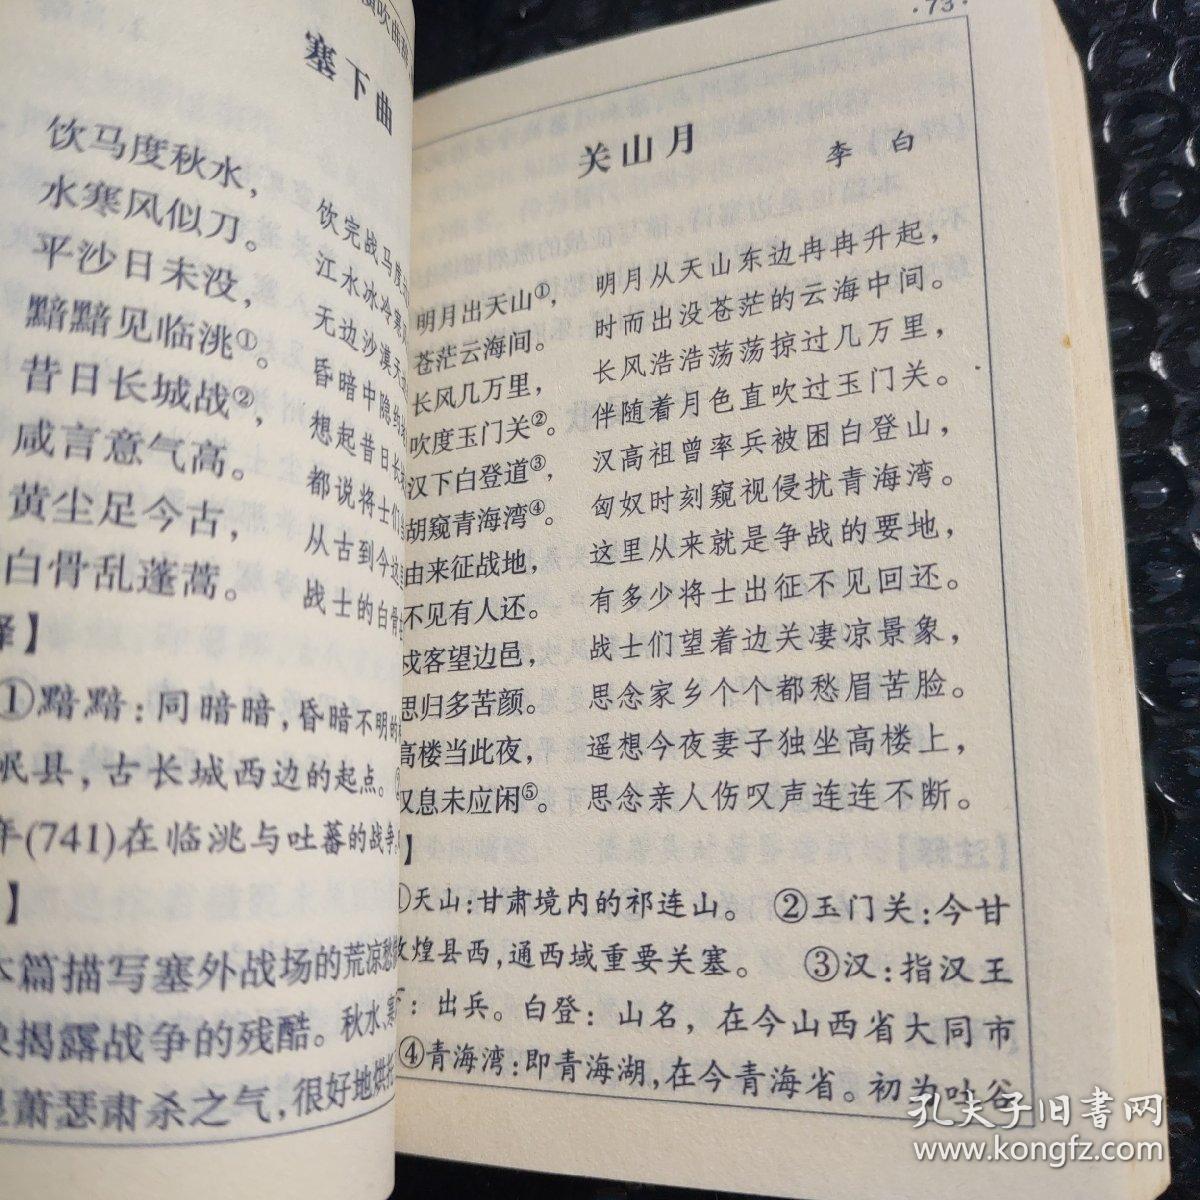 塞下曲
饮马度秋水，
水寒风似刀。
平沙日未没，
黯黯见临洮①。
昔日长城战②，
咸言意气高。
黄尘足今古，
白骨乱蓬蒿。
饮完战马度
江水冰冷寒
无边沙漠天
昏暗中隐约
想起昔日长
都说将士们
从古到今这
战士的白骨
释】
①黯黯：同暗暗，昏暗不明的
岷县，古长城西边的起点。
年(741)在临洮与吐蕃的战争，
】
本篇描写塞外战场的荒凉愁
揭露战争的残酷。秋水、寒
萧瑟肃杀之气，很好地烘托
·73·
关山月
李白
明月出天山①，
苍茫云海间。
长风几万里，
吹度玉门关②。
汉下白登道③，
胡窥青海湾④。
由来征战地，
不见有人还。
戍客望边邑，
思归多苦颜。
高楼当此夜，
叹息未应闲⑤。
明月从天山东边冉冉升起，
时而出没苍茫的云海中间。
长风浩浩荡荡掠过几万里，
伴随着月色直吹过玉门关。
汉高祖曾率兵被困白登山，
匈奴时刻窥视侵扰青海湾。
这里从来就是争战的要地，
有多少将士出征不见回还。
战士们望着边关凄凉景象，
思念家乡个个都愁眉苦脸。
遥想今夜妻子独坐高楼上，
思念亲人伤叹声连连不断。
】
①天山：甘肃境内的祁连山。 ②玉门关：今甘
敦煌县西，通西域重要关塞。 ③汉：指汉王
下：出兵。白登：山名，在今山西省大同市
④青海湾：即青海湖，在今青海省。初为吐谷
孔夫子旧书网
www.kongfz.com